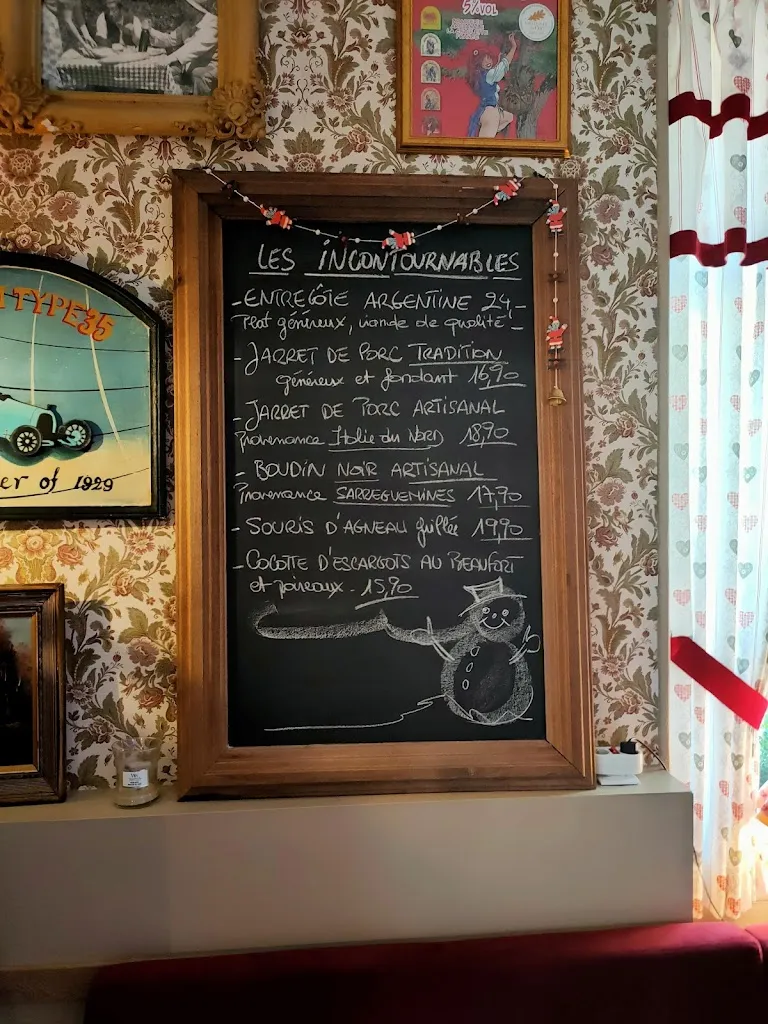 5%VOL
TYPE 35
er of 1929
LES INCONTOURNABLES
- ENTRECÔTE ARGENTINE 24,-
Plat généreux, viande de qualité -
- JARRET DE PORC TRADITION
généreux et fondant 16,90
- JARRET DE PORC ARTISANAL
Provenance Italie du Nord 18,90
- BOUDIN NOIR ARTISANAL
Provenance SARREGUEMINES 17,90
- SOURIS D'AGNEAU grillée 19,90
- COCOTTE D'ESCARGOTS AU BEAUFORT
et poireaux - 15,90